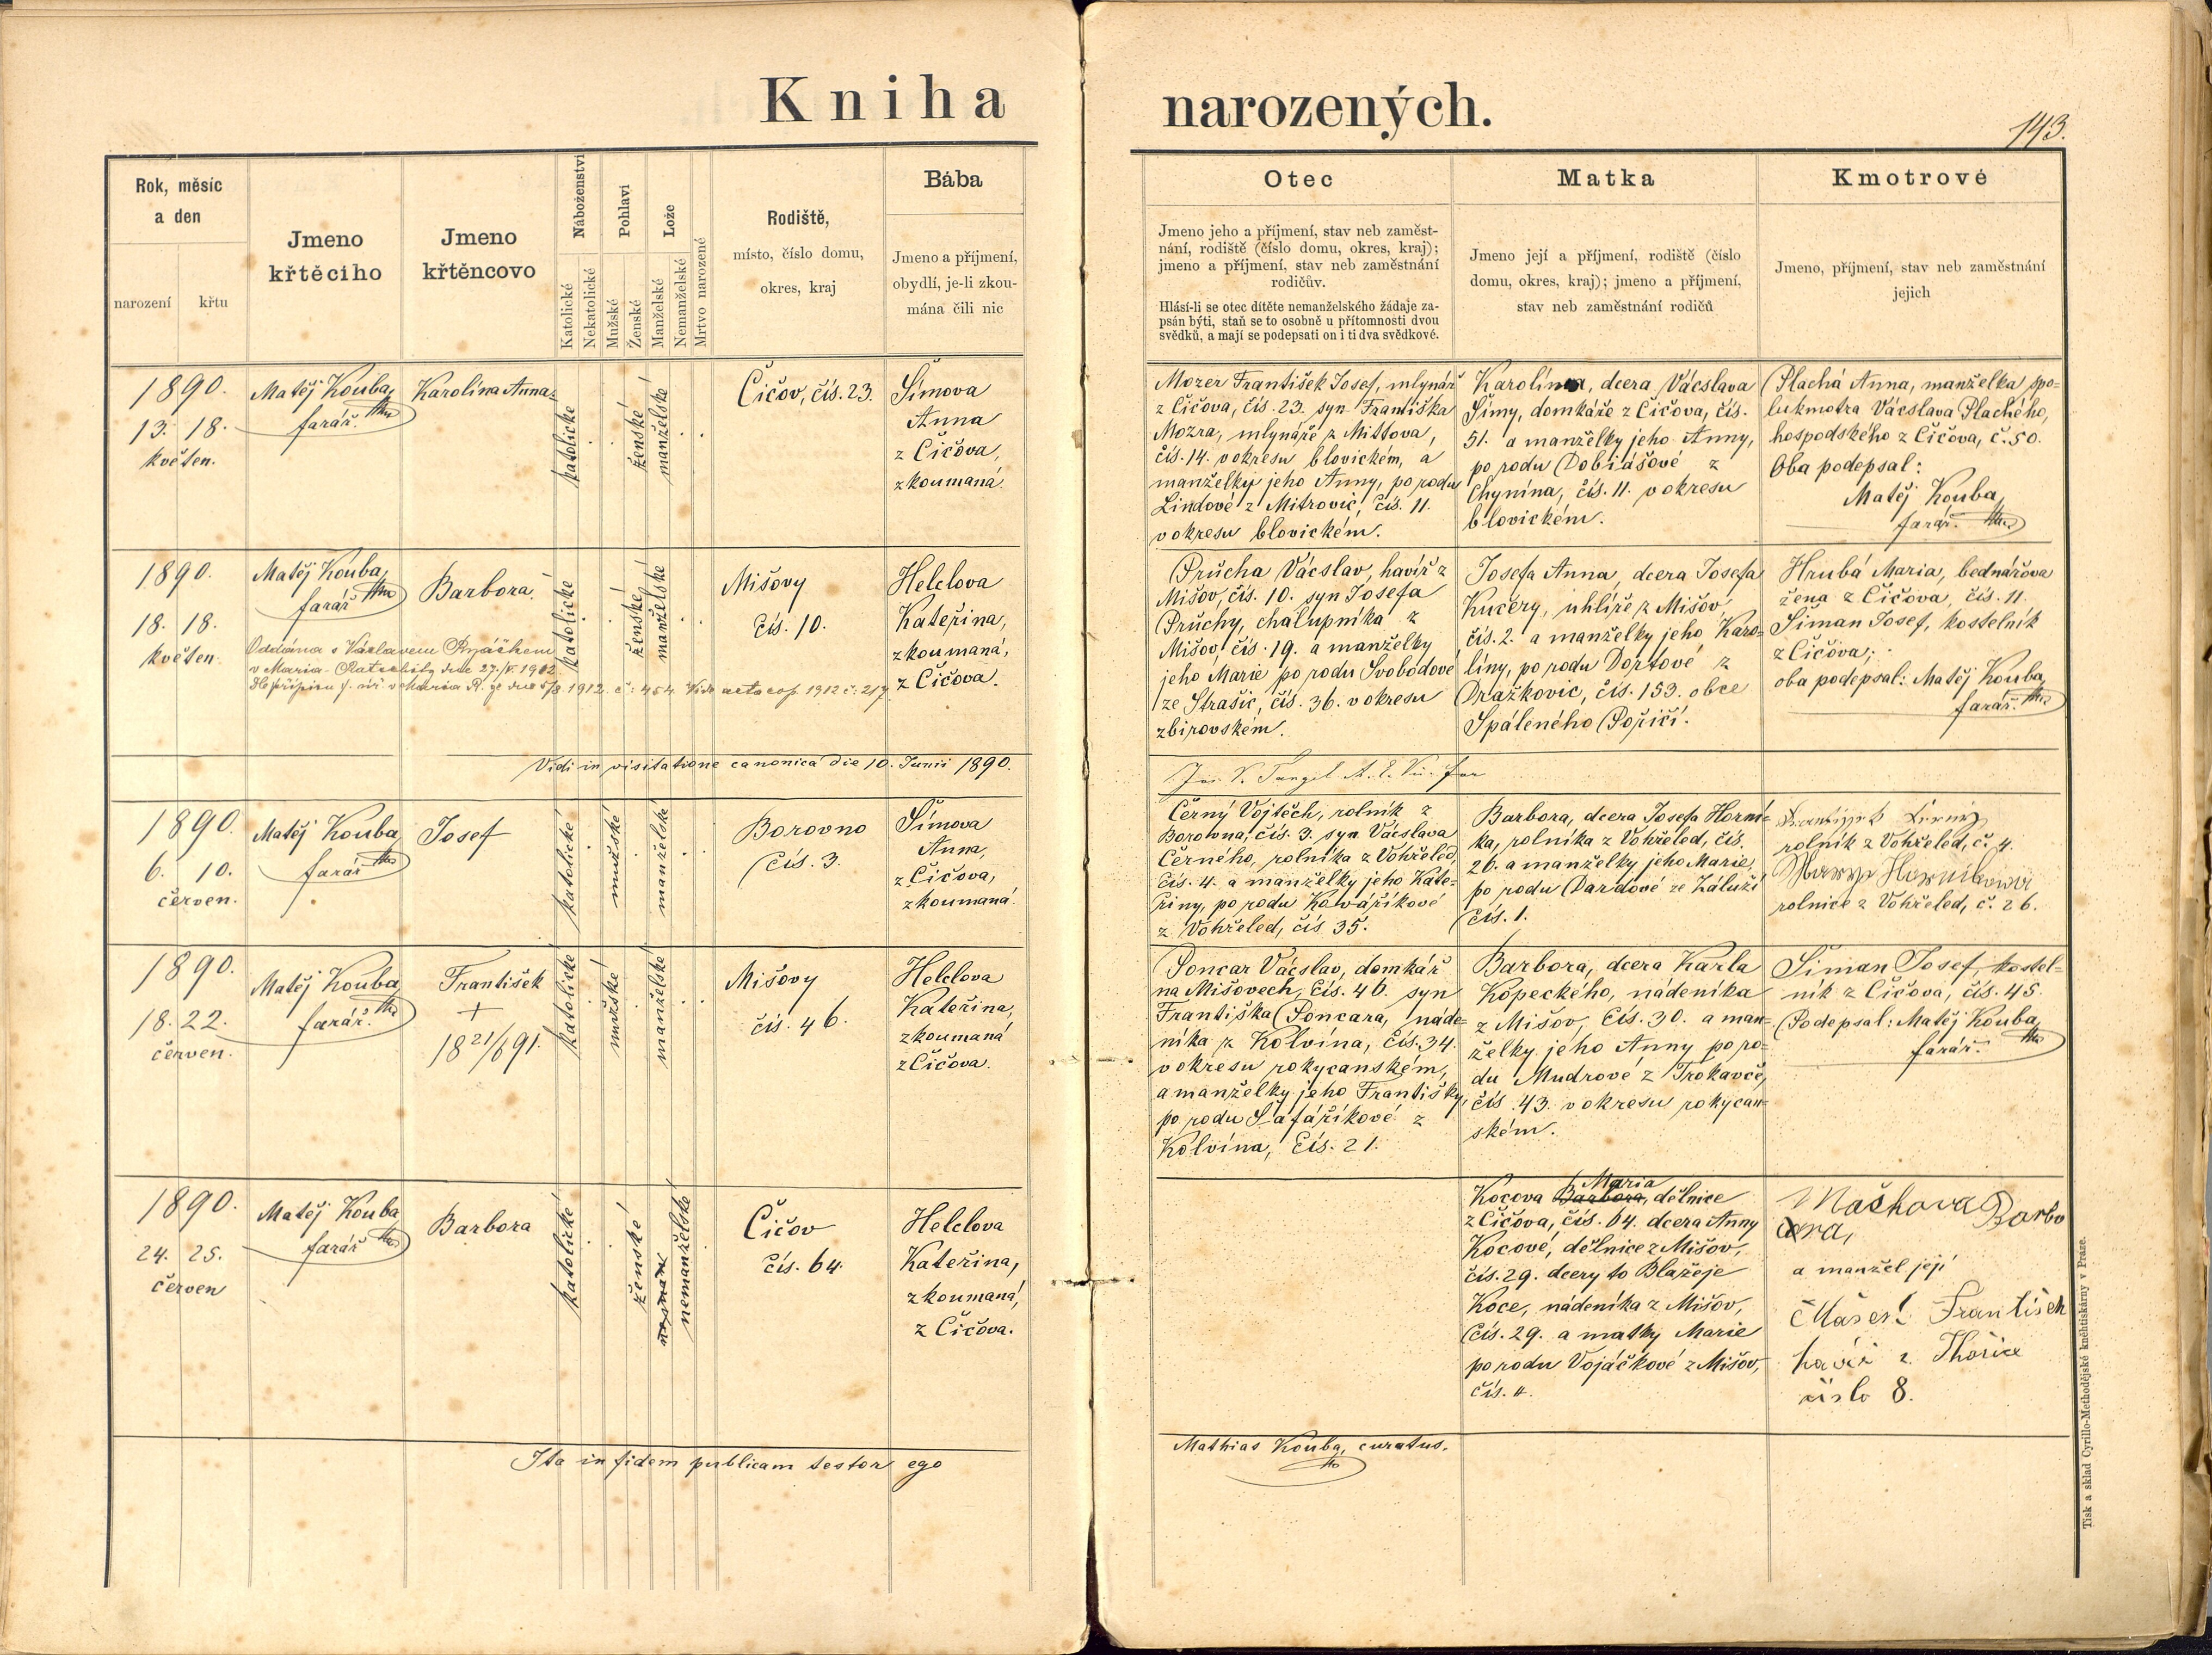 Kniha narozených.
143.
Rok, měsíc
a den
narození
křtu
Jmeno
křtěcího
Jmeno
křtěncovo
Náboženství
Katolické
Nekatolické
Pohlaví
Mužské
Ženské
Lože
Manželské
Nemanželské
Mrtvo narozené
Rodiště,
místo, číslo domu,
okres, kraj
Bába
Jmeno a příjmení,
obydlí, je-li zkou-
mána čili nic
Otec
Jmeno jeho a příjmení, stav neb zaměst-
nání, rodiště (číslo domu, okres, kraj);
jmeno a příjmení, stav neb zaměstnání
rodičův.
Hlásí-li se otec dítěte nemanželského žádaje za-
psán býti, staň se to osobně u přítomnosti dvou
svědků, a mají se podepsati on i ti dva svědkové.
Matka
Jmeno její a příjmení, rodiště (číslo
domu, okres, kraj); jmeno a příjmení,
stav neb zaměstnání rodičů
Kmotrové
Jmeno, příjmení, stav neb zaměstnání
jejich
1890.
13. 18.
květen.
Matěj Kouba,
farář.
Karolína Anna.
katolické
ženské
manželské
Čičov, čís. 23.
Šímova
Anna
z Čičova,
zkoumaná.
Mozer František Josef, mlynář
z Čičova, čís. 23. syn Františka
Mozra, mlynáře z Mittova,
čís. 14. v okresu blovickém, a
manželky jeho Anny, po rodu
Lindové z Mitrovic, čís. 11.
v okresu blovickém.
Karolína, dcera Vácslava
Šímy, domkáře z Čičova, čís.
51. a manželky jeho Anny,
po rodu Dobiášové z
Chynína, čís. 11. v okresu
blovickém.
Plachá Anna, manželka spo-
lukmotra Vácslava Plachého,
hospodského z Čičova, č. 50.
Oba podepsal:
Matěj Kouba,
farář.
1890.
18. 18.
květen.
Matěj Kouba,
farář
Barbora.
katolické
ženské
manželské
Mišovy
čís. 10.
Helclova
Kateřina,
zkoumaná,
z Čičova.
Oddána s Václavem
v Maria-Ratschitz dne 27./ 1912
1912. č: 454. Vide acta cop. 1912 č: 217.
Průcha Vácslav, havíř z
Mišov, čís. 10. syn Josefa
Průchy, chalupníka z
Mišov čís. 19. a manželky
jeho Marie po rodu Svobodové
ze Strašic, čís. 36. v okresu
zbirovském.
Josefa Anna, dcera Josefa
Kučery, uhlíře z Mišov,
čís. 2. a manželky jeho Karo-
líny, po rodu Dortové z
Dražkovic, čís. 153. obce
Spáleného Poříčí.
Hrubá Maria, bednářova
žena z Čičova, čís. 11.
Šiman Josef, kostelník
z Čičova;
oba podepsal: Matěj Kouba,
farář.
Vidi in visitatione canonica die 10. Junii 1890.
1890.
6. 10.
červen.
Matěj Kouba,
farář
Josef
katolické
mužské
manželské
Borovno
čís. 3.
Šímova
Anna,
z Čičova,
zkoumaná.
Černý Vojtěch, rolník z
Borovna, čís. 3. syn Vácslava
Černého, rolníka z Vohřeled,
čís. 4. a manželky jeho Kate-
řiny, po rodu Kováříkové
z Vohřeled, čís 35.
Barbora, dcera Josefa Horní-
ka, rolníka z Vohřeled, čís.
26. a manželky jeho Marie,
po rodu Dardové ze Záluží
čís. 1.
rolník z Vohřeled, č. 4.
rolnice z Vohřeled, č. 26.
1890.
18. 22.
červen.
Matěj Kouba,
farář.
František
+
18 21/6 91.
katolické
mužské
manželské
Mišovy
čís. 46.
Helclova
Kateřina,
zkoumaná
z Čičova.
Poncar Vácslav, domkář
na Mišovech, čís. 46. syn
Františka Poncara, náde-
níka z Kolvína, čís. 34.
v okresu rokycanském,
a manželky jeho Františky,
po rodu Šafaříkové z
Kolvína, čís. 21.
Barbora, dcera Karla
Kopeckého, nádeníka
z Mišov, čís. 30. a man-
želky jeho Anny po ro-
du Mudrové z Trokavce,
čís 43. v okresu rokycan-
ském.
Šiman Josef, kostel-
ník z Čičova, čís. 45.
Podepsal: Matěj Kouba,
farář.
1890.
24. 25.
červen
Matěj Kouba
farář
Barbora
katolické
ženské
nemanželské
Čičov
čís. 64.
Helclova
Kateřina,
zkoumaná,
z Čičova.
Maria
Kocova Barbora, dělnice
z Čičova, čís. 64. dcera Anny
Kocové, dělnice z Mišov,
čís. 29. dcery to Blažeje
Koce, nádeníka z Mišov,
čís. 29. a matky Marie
po rodu Vojáčkové z Mišov,
čís. 4.
Maškova Barbo
ra,
a manžel její
Mašek František
havíř z Thořice
číslo 8.
Ita in fidem publicam testor ego
Mathias Kouba, curatus.
Tisk a sklad Cyrillo-Methodějské kněhtiskárny v Praze.